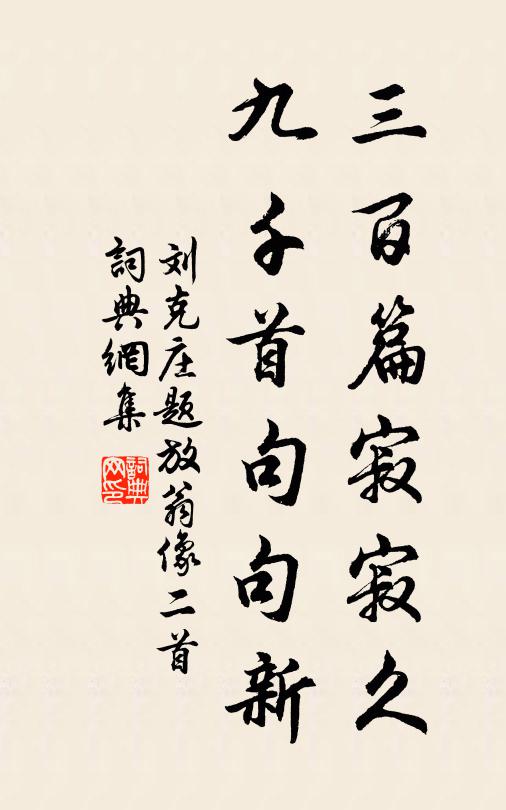 三百篇寂寂久
九千首句句新
刘克庄题放翁像二首
詞典網集
詞典网印